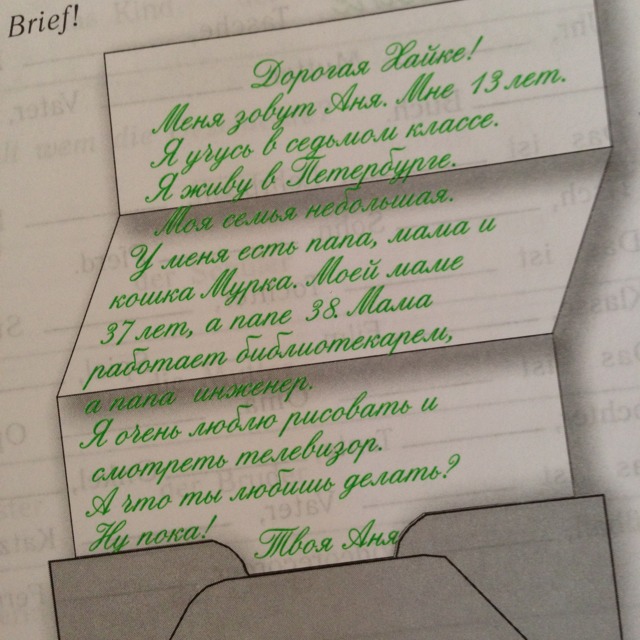 Brief!
Дорогая Хайке!
Меня зовут Аня. Мне 13 лет.
Я учусь в седьмом классе.
Я живу в Петербурге.
Моя семья небольшая.
У меня есть папа, мама и
кошка Мурка. Моей маме
37 лет, а папе 38. Мама
работает библиотекарем,
а папа инженер.
Я очень люблю рисовать и
смотреть телевизор.
А что ты любишь делать?
Ну пока! Твоя Аня